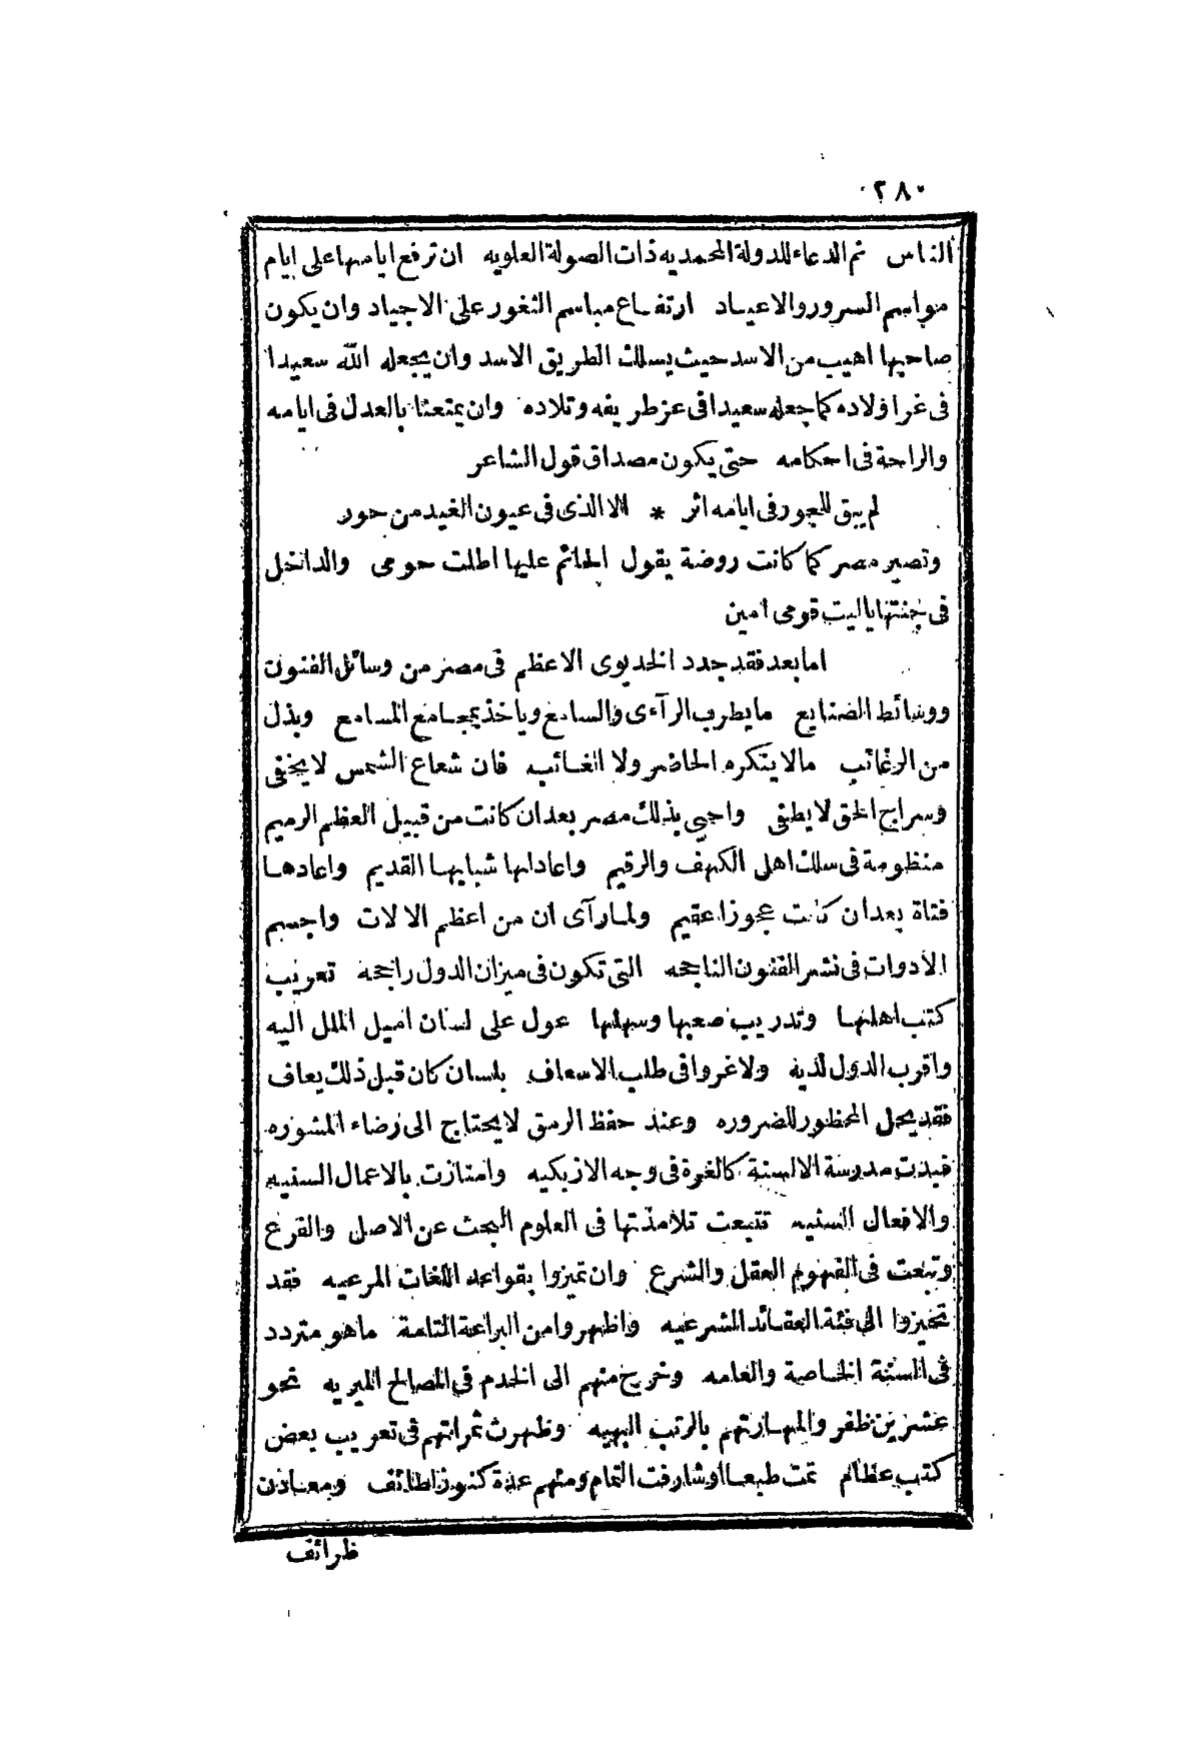 ٢٨٠
الناس ثم الدعاء للدولة المحمديه ذات الصولة العلويه ان ترفع ايامها على ايام
مواسم السرور والاعياد ارتفاع مباسم الثغور على الاجياد وان يكون
صاحبها اهيب من الاسد حيث يسلك الطريق الاسد وان يجعله الله سعيدا
فى غر اولاده كما جعله سعيدا فى عز طريفه وتلاده وان يمتعنا بالعدل فى ايامه
والراحة فى احكامه حتى يكون مصداق قول الشاعر
لم يبق للجور فى ايامه اثر * الا الذى فى عيون الغيد من حور
وتصير مصر كما كانت روضة يقول الحائم عليها اطلت حومى والداخل
فى جنتها ياليت قومى امين
اما بعد فقد جدد الخديوى الاعظم فى مصر من وسائل الفنون
ووسائط الصنايع ما يطرب الرآءى والسامع وياخذ بمجامع المسامع وبذل
من الرغائب مالا ينكره الحاضر ولا الغائب فان شعاع الشمس لا يخفى
وسراج الحق لا يطفى واحيى بذلك مصر بعد ان كانت من قبيل العظم الرميم
منظومة فى سلك اهل الكهف والرقيم واعاد لها شبابها القديم واعادها
فتاة بعد ان كانت عجوزا عقيم ولما رآى ان من اعظم الالات واجسم
الادوات فى نشر الفنون الناجحه التى تكون فى ميزان الدول راجحه تعريب
كتب اهلها وتدريب صعبها وسهلها عول على لسان اميل الملل اليه
واقرب الدول لديه ولا غروا فى طلب الاسعاف بلسان كان قبل ذلك يعاف
فقد يحل المحظور للضروره وعند حفظ الرمق لا يحتاج الى رضاء المشوره
فبدت مدرسة الالسنة كالغرة فى وجه الازبكيه وامتازت بالاعمال السنيه
والافعال السنيه تتبعت تلامذتها فى العلوم البحث عن الاصل والفرع
وتبعت فى الفهوم العقل والشرع وان تميزوا بقواعد اللغات المرعيه فقد
تحيزوا الى فئة العقائد الشرعيه واظهروا من البراعة التامة ماهو متردد
فى السنة الخاصة والعامه وخرج منهم الى الخدم فى المصالح الميريه نحو
عشرين ظفر والمهارتهم بالرتب البهيه وظهرت ثمراتهم فى تعريب بعض
كتب عظام تمت طبعا او شارفت التمام ومنهم عدة كنوز لطائف ومعادن
ظرائف